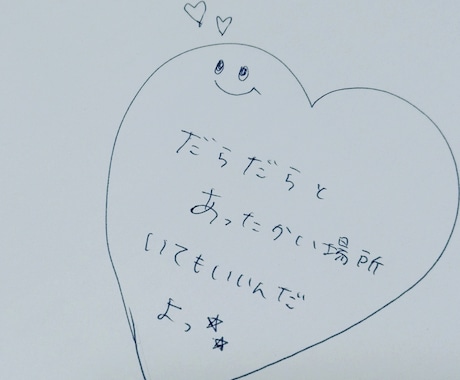 だらだらと
あったかい場所
いてもいいんだ
よっ☆☆